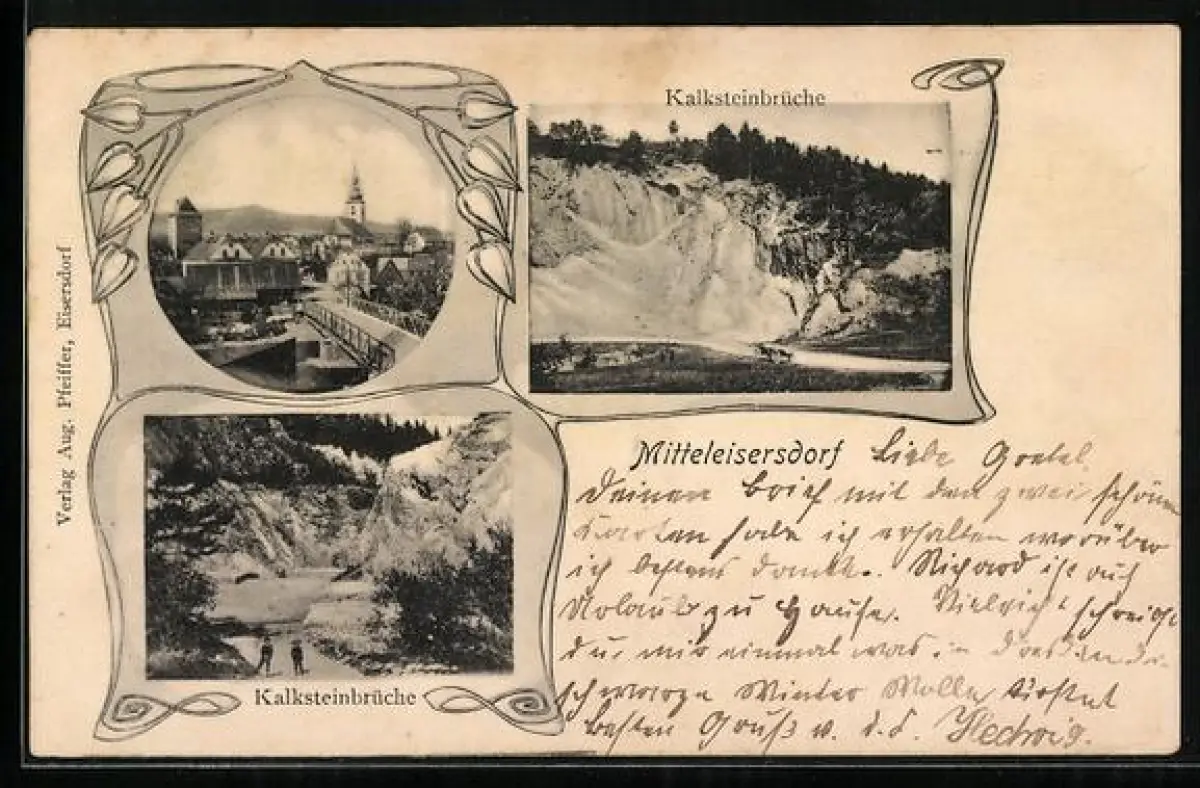 Kalksteinbrüche
Verlag Aug. Pfeiffer, Eisersdorf
Kalksteinbrüche
Mitteleisersdorf
Liebe Gretel,
Deinen Brief mit den zwei schönen
Karten habe ich erhalten worüber
ich bestens danke. Richard ist auf
Urlaub zu Hause. Vielleicht schreibst
du mir einmal was in
schwarze Winter Wolle kostet
besten Gruß v. d. d. Hedwig.